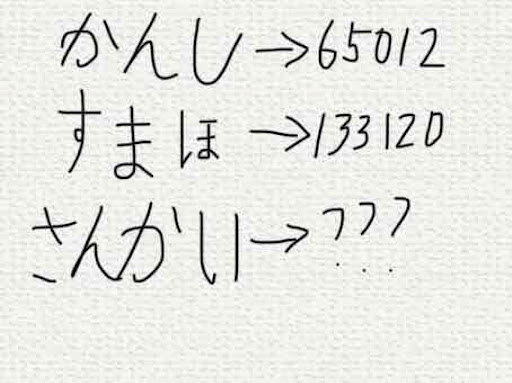 かんし→65012
すまほ→133120
さんかい→???